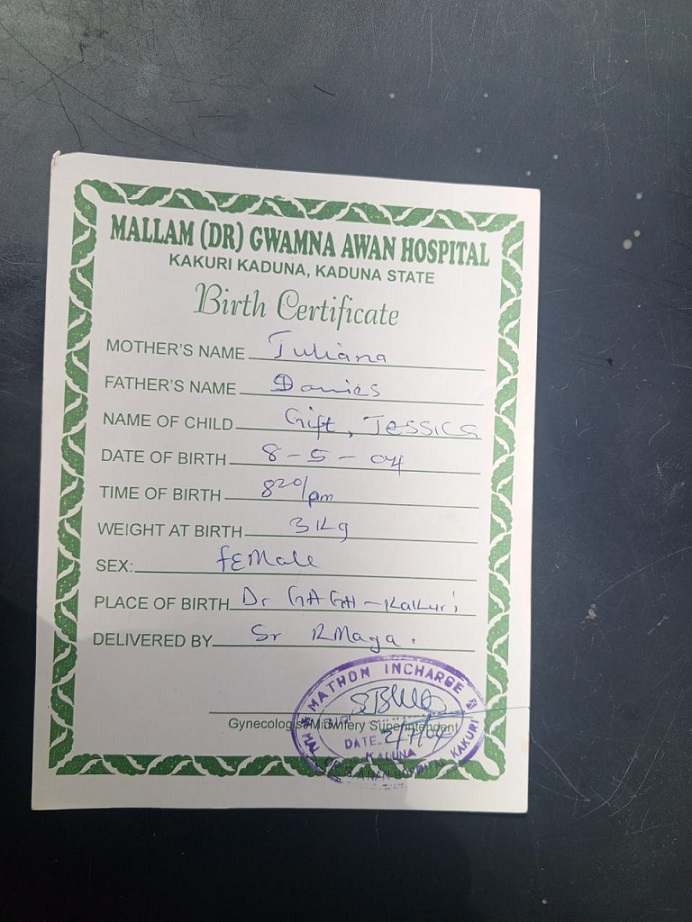 MALLAM (DR) GWAMNA AWAN HOSPITAL
KAKURI KADUNA, KADUNA STATE
Birth Certificate
MOTHER'S NAME Juliana
FATHER'S NAME
NAME OF CHILD Gift, Jessica
DATE OF BIRTH 8-5-04
TIME OF BIRTH 8 20/pm
WEIGHT AT BIRTH 3kg
SEX: female
PLACE OF BIRTH Dr GAGH-Kakuri
DELIVERED BY Sr R Maga.
MATHON INCHARGE
Gynecologist/Midwifery Superintendent
DATE
KADUNA
KAKURI